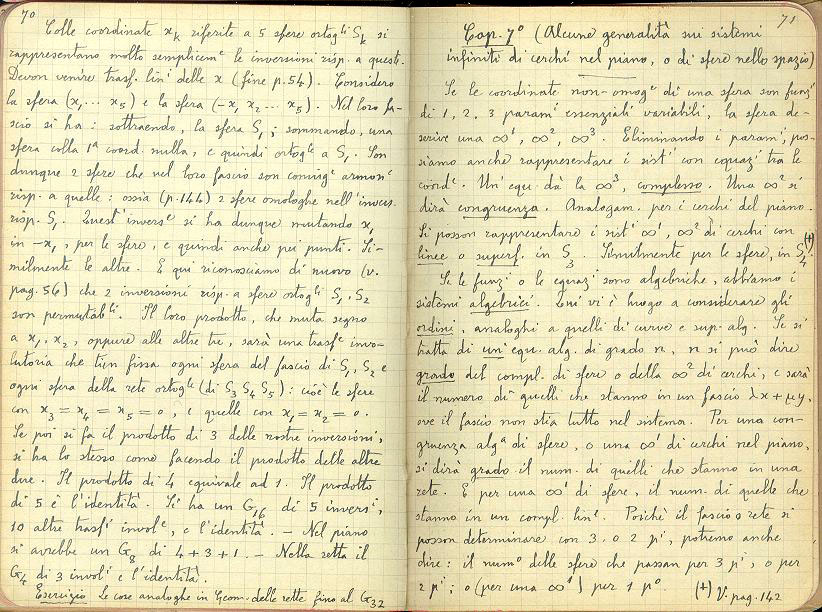 70
Colle coordinate x_k riferite a 5 sfere ortog^li S_k si
rappresentano molto semplicem^e le inversioni risp. a queste.
Devon venire trasf. lin^i delle x (fine p. 54). Considero
la sfera (x_1 ... x_5) e la sfera (-x_1 x_2 ... x_5). Nel loro fa-
scio si ha: sottraendo, la sfera S_1; sommando, una
sfera colla 1^a coord. nulla, e quindi ortog^le a S_1. Son
dunque 2 sfere che nel loro fascio son coniug^e armon^e
risp. a quelle: ossia (p. 144) 2 sfere omologhe nell'invers.
risp. S_1. Quest'invers^e si ha dunque mutando x_1
in -x_1, per le sfere, e quindi anche pei punti. Si-
milmente le altre. E qui riconosciamo di nuovo (v.
pag. 56) che 2 inversioni risp. a sfere ortog^li S_1, S_2
son permutab^li. Il loro prodotto, che muta segno
a x_1, x_2, oppure alle altre tre, sarà una trasf^e invo-
lutoria che tien fissa ogni sfera del fascio di S_1, S_2 e
ogni sfera della rete ortog^le (di S_3 S_4 S_5): cioè le sfere
con x_3 = x_4 = x_5 = 0, e quelle con x_1 = x_2 = 0.
Se poi si fa il prodotto di 3 delle nostre inversioni,
si ha lo stesso come facendo il prodotto delle altre
due. Il prodotto di 4 equivale ad 1. Il prodotto
di 5 è l'identità. Si ha un G_16 di 5 invers^i,
10 altre trasf^i invol^e, e l'identità. — Nel piano
si avrebbe un G_8 di 4+3+1. — Nella retta il
G_4 di 3 invol^i e l'identità.
Esercizio le cose analoghe in Geom. delle rette fino al G_32
71
Cap. 7° (Alcune generalità sui sistemi
infiniti di cerchi nel piano, o di sfere nello spazio)
Se le coordinate non-omog^e di una sfera son funz^i
di 1, 2, 3 param^i essenziali variabili, la sfera de-
scrive una ∞^1, ∞^2, ∞^3. Eliminando i param^i, pos-
siamo anche rappresentare i sist^i con equaz^i tra le
coord^e. Un'equ. dà la ∞^3, complesso. Una ∞^2 si
dirà congruenza. Analogam. per i cerchi del piano.
Si posson rappresentare i sist^i ∞^1, ∞^2 di cerchi con
linee o superf. in S_3. Similmente per le sfere, in S_4.(+)
Se le funz^i o le equaz^i sono algebriche, abbiamo i
sistemi algebrici. Qui vi è luogo a considerare gli
ordini, analoghi a quelli di curve e sup. alg. Se si
tratta di un'equ. alg. di grado n, n si può dire
grado del compl. di sfere o della ∞^2 di cerchi, e sarà
il numero di quelli che stanno in un fascio λx + μy,
ove il fascio non stia tutto nel sistema. Per una con-
gruenza alg^a di sfere, o una ∞^1 di cerchi nel piano,
si dirà grado il num. di quelli che stanno in una
rete. E per una ∞^1 di sfere, il num. di quelle che
stanno in un compl. lin^e. Poichè il fascio o rete si
posson determinare con 3, o 2 p^i, potremo anche
dire: il num^o delle sfere che passan per 3 p^i, o per
2 p^i; o (per una ∞^1) per 1 p^o. (+) V. pag. 142